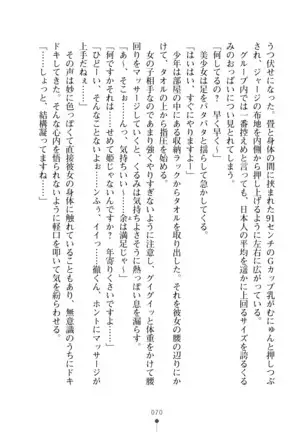 うつ伏せになった、畳と身体の間に挟まれた91センチのGカップ乳がむにゅんと押しつぶ
され、ジャージの布地を内側から押し上げるように左右に広がっている。
グループ内では一番控えめと言っても、日本人の平均を遥かに上回るサイズを誇るくる
みのおっぱいについつい見とれてしまう。
「何してるの？　早く早く〜」
美少女は足をパタパタと揺らして急かしてくる。
「はいはい、すぐにやりますよ」
少年は部屋の中にある収納ラックからタオルを取り出す。それを彼女の腰の辺りにか
け、タオルの上から指圧を始める。
女の子相手なのであまり強くやりすぎないように注意し、グイグイッと体重をかけて腰
回りをマッサージしていくと、くるみは気持ちよさそうに熱っぽい息を漏らす。
「あ〜、そこぉ……ん、気持ちいい……余は満足じゃ〜」
「何ですかそれは？　姫じゃないんですから。年寄りくさいですよ」
「ひどーい、そんなことない……ンンふぅ、イイィっ……徹くん、ホントにマッサージが
上手だねぇ……」
「……しょっと、結構凝ってますね……」
ドキの声は妙に色っぽくて直接彼女の身体に触れていることもあり、無意識のうちにドキ
ドキしてしまう。そんな心内を悟られないように軽口を叩いて気を紛らわせる。
070